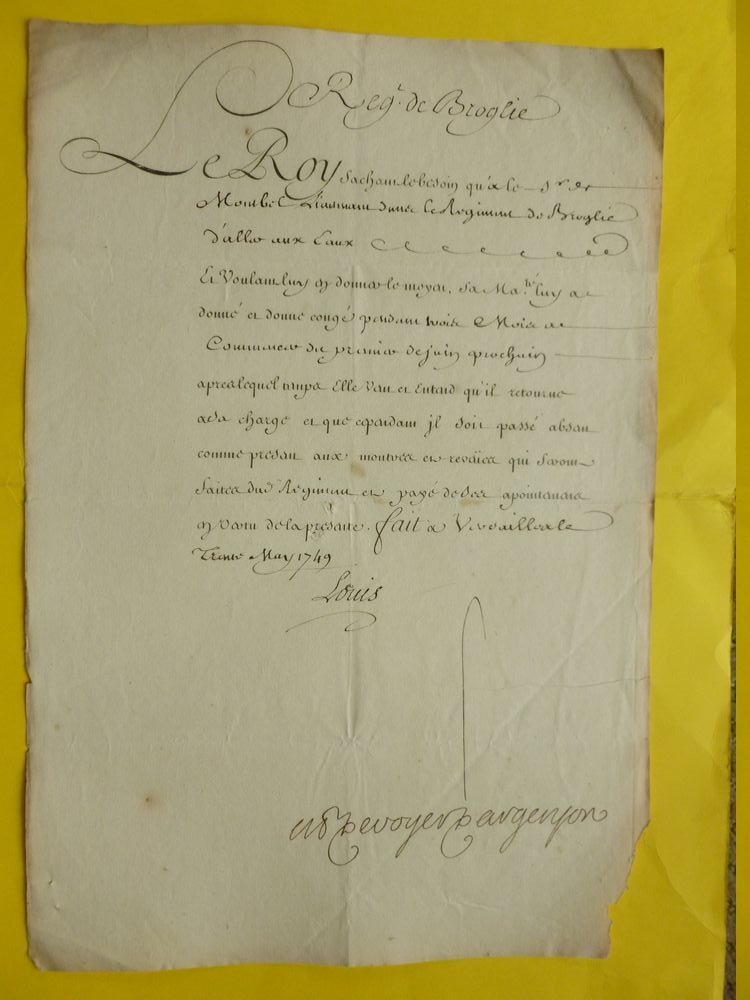 Reg.t de Broglie
Le Roy sachant le besoin qu'a le Sr. de
Monbel Lieutenant dans le Regiment de Broglie
d'aller aux Eaux
Et Voulant luy en donner le moyen, sa Ma.té luy a
donné et donne congé pendant trois Mois a
Commencer du premier de juin prochain
apres lequel temps Elle veut et Entend qu'il retourne
a sa charge et que cependant jl soit passé absent
comme present aux montres et reveües qui seront
faites dud. Regiment et payé de ses apointemens
en vertu de la presente. fait a Versailles le
Trente May 1749
Louis
M de voyer d'argenson